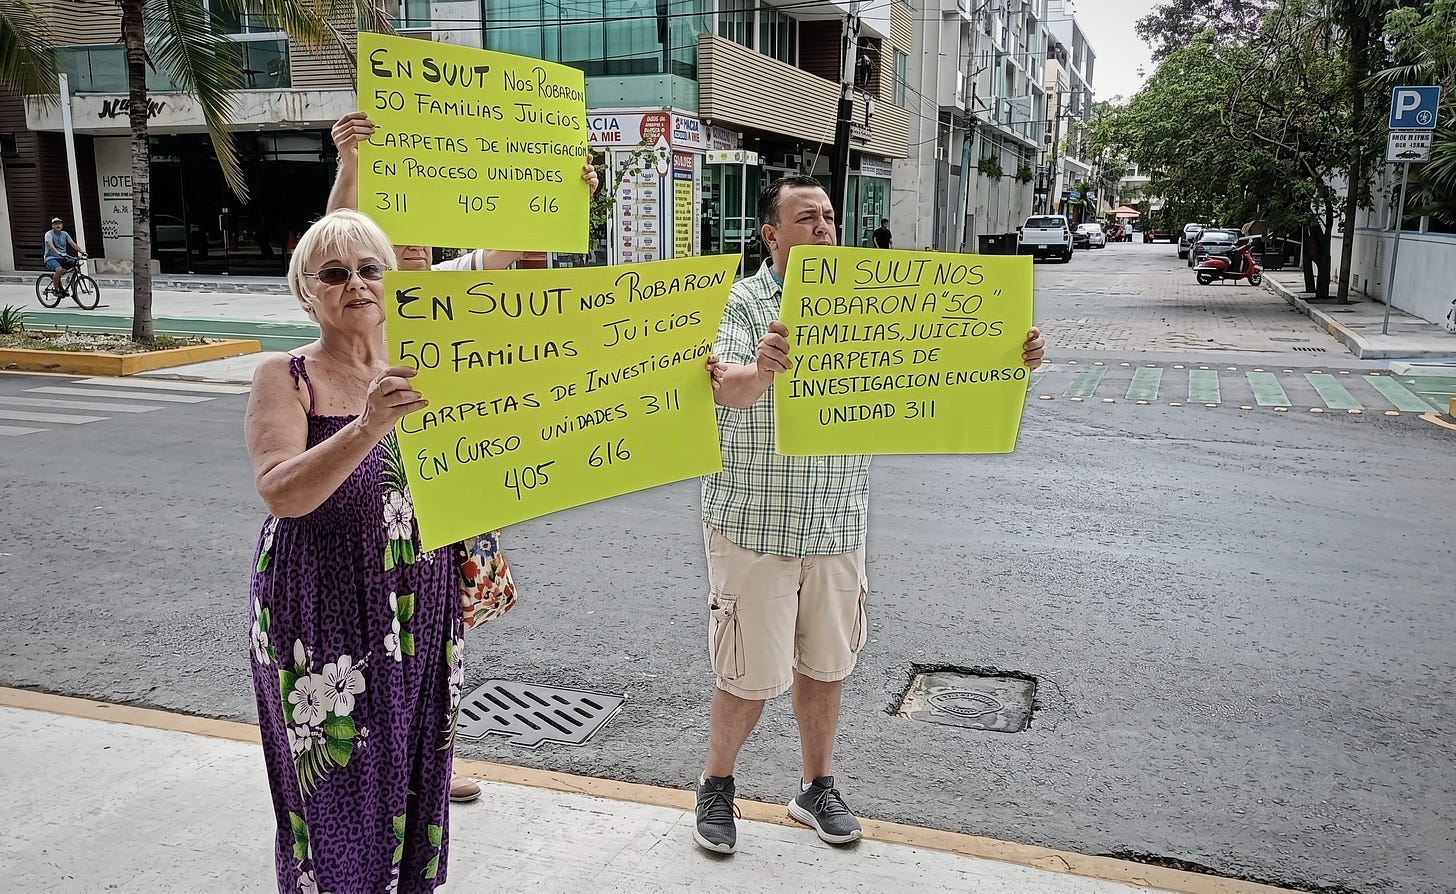 EN SUUT NOS ROBARON
50 FAMILIAS JUICIOS
CARPETAS DE INVESTIGACIÓN
EN PROCESO UNIDADES
311 405 616
EN SUUT NOS ROBARON
50 FAMILIAS JUICIOS
CARPETAS DE INVESTIGACIÓN
EN CURSO UNIDADES 311
405 616
EN SUUT NOS
ROBARON A "50"
FAMILIAS, JUICIOS
Y CARPETAS DE
INVESTIGACION EN CURSO
UNIDAD 311
HOTEL
P